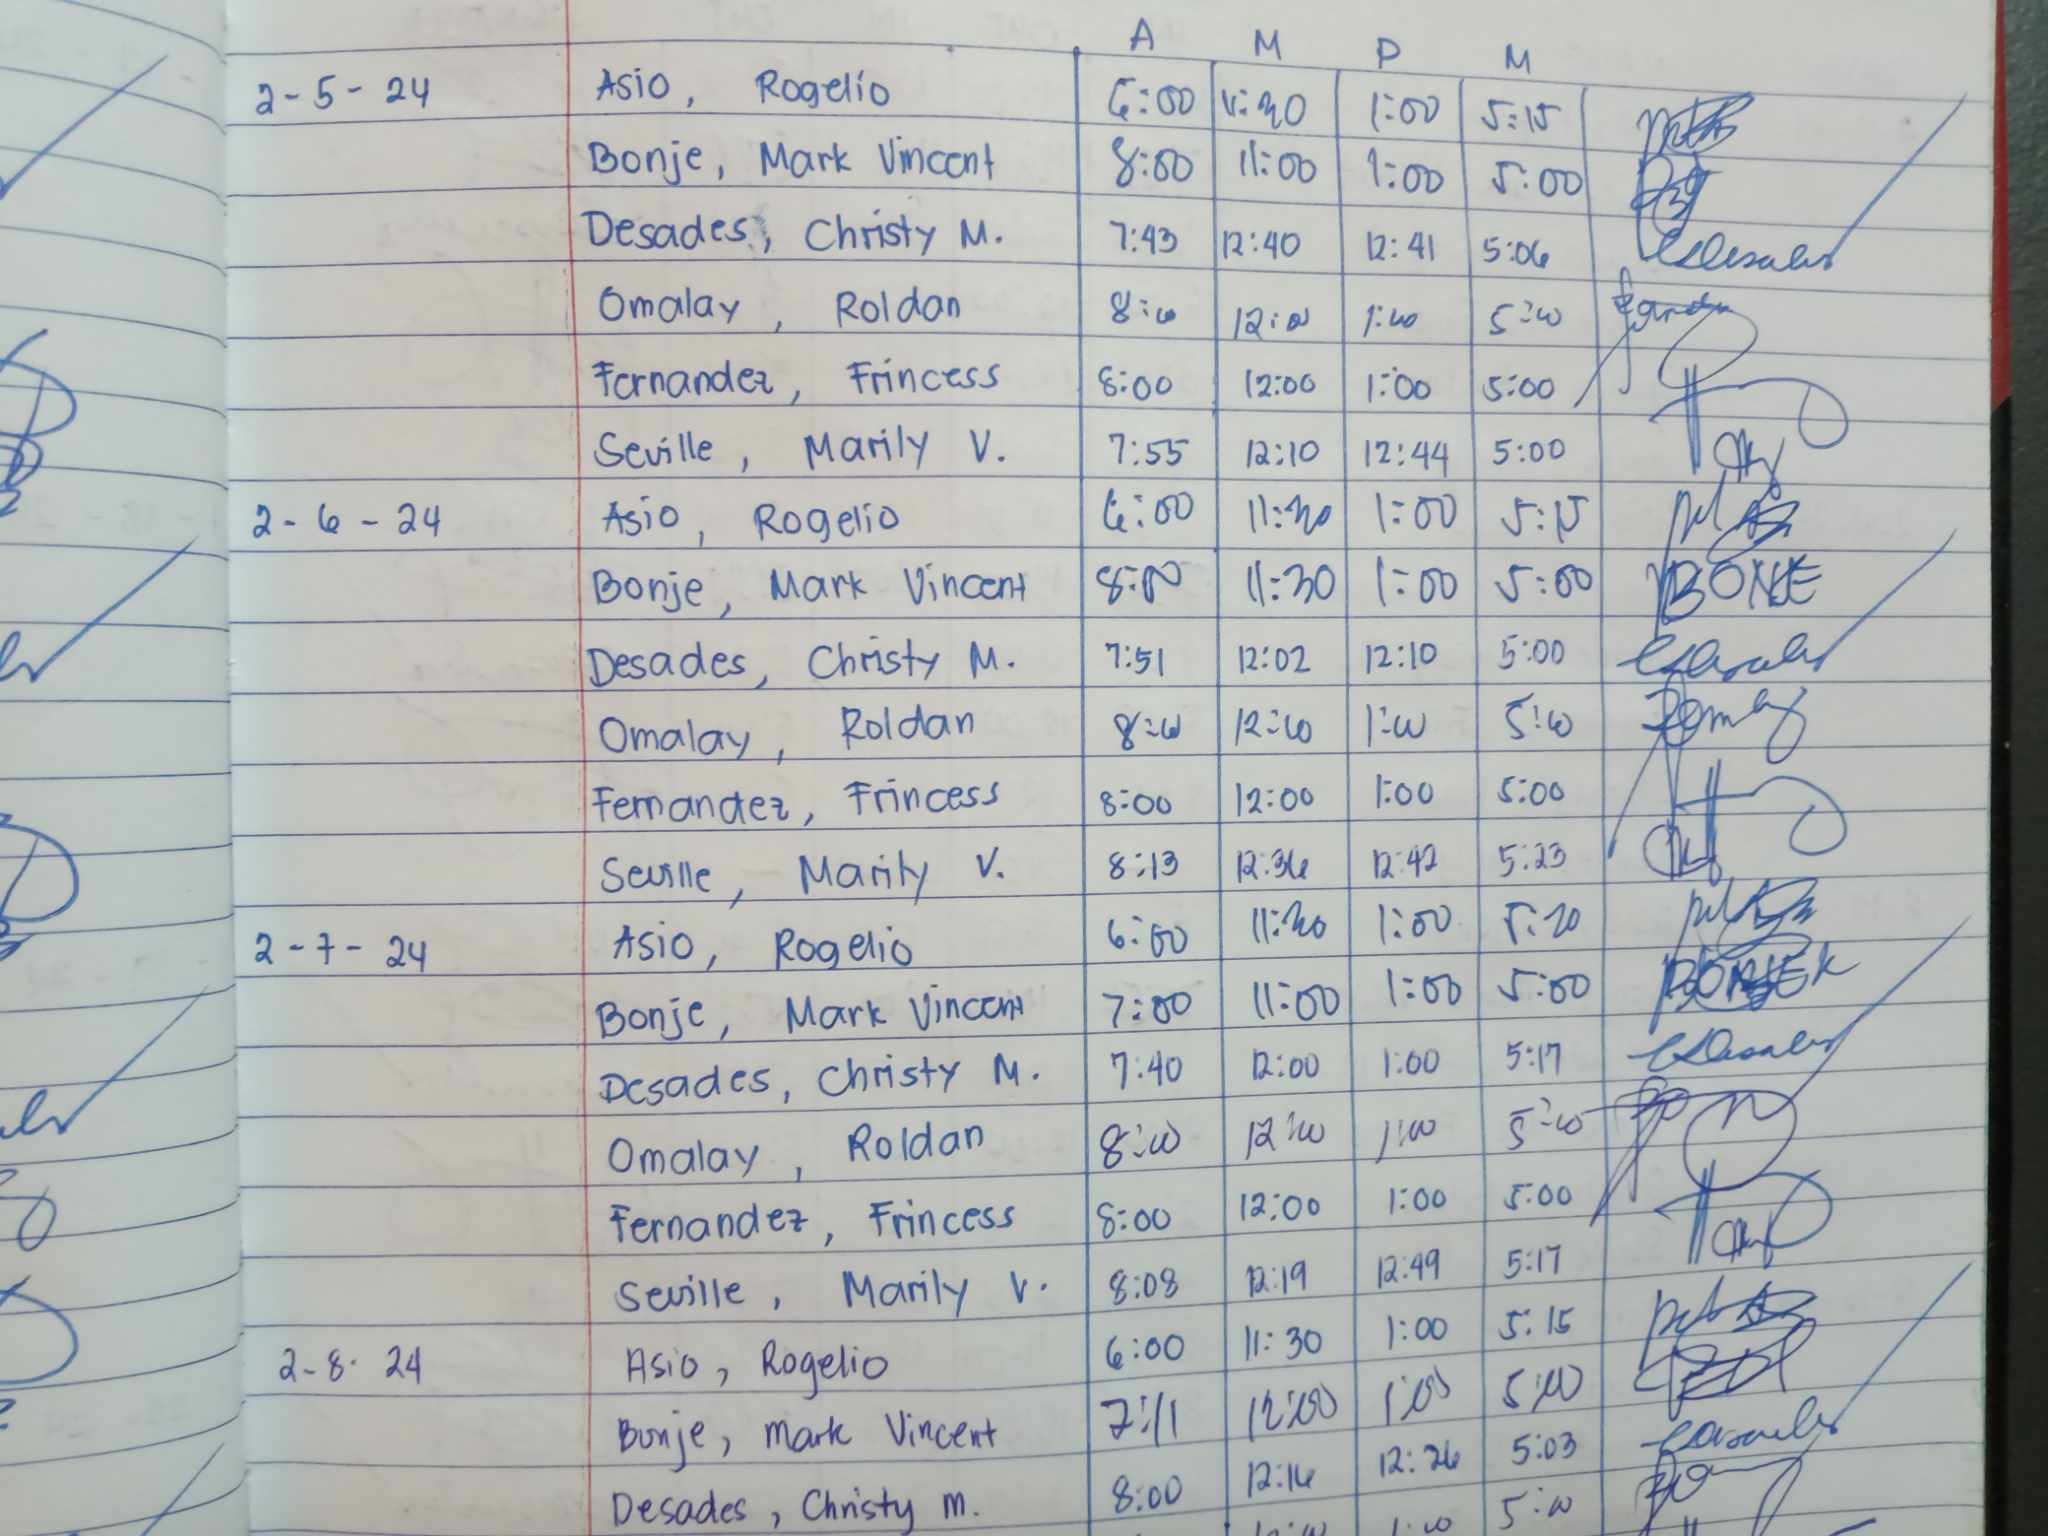 A M P M
2-5-24 Asio, Rogelio 6:00 11:30 1:00 5:15
Bonje, Mark Vincent 8:00 11:00 1:00 5:00
Desades, Christy M. 7:43 12:40 12:41 5:06
Omalay, Roldan 8:00 12:00 1:00 5:00
Fernandez, Frincess 8:00 12:00 1:00 5:00
Seville, Marily V. 7:55 12:10 12:44 5:00
2-6-24 Asio, Rogelio 6:00 11:30 1:00 5:15
Bonje, Mark Vincent 8:00 11:30 1:00 5:00 BONJE
Desades, Christy M. 7:51 12:02 12:10 5:00
Omalay, Roldan 8:00 12:00 1:00 5:00
Fernandez, Frincess 8:00 12:00 1:00 5:00
Seville, Marily V. 8:13 12:36 12:42 5:23
2-7-24 Asio, Rogelio 6:00 11:30 1:00 5:20
Bonje, Mark Vincent 7:00 11:00 1:00 5:00
Desades, Christy M. 7:40 12:00 1:00 5:17
Omalay, Roldan 8:00 12:00 1:00 5:00
Fernandez, Frincess 8:00 12:00 1:00 5:00
Seville, Marily V. 8:08 12:19 12:49 5:17
2-8-24 Asio, Rogelio 6:00 11:30 1:00 5:15
Bonje, Mark Vincent 7:11 12:00 1:00 5:00
Desades, Christy M. 8:00 12:16 12:26 5:03
5:00